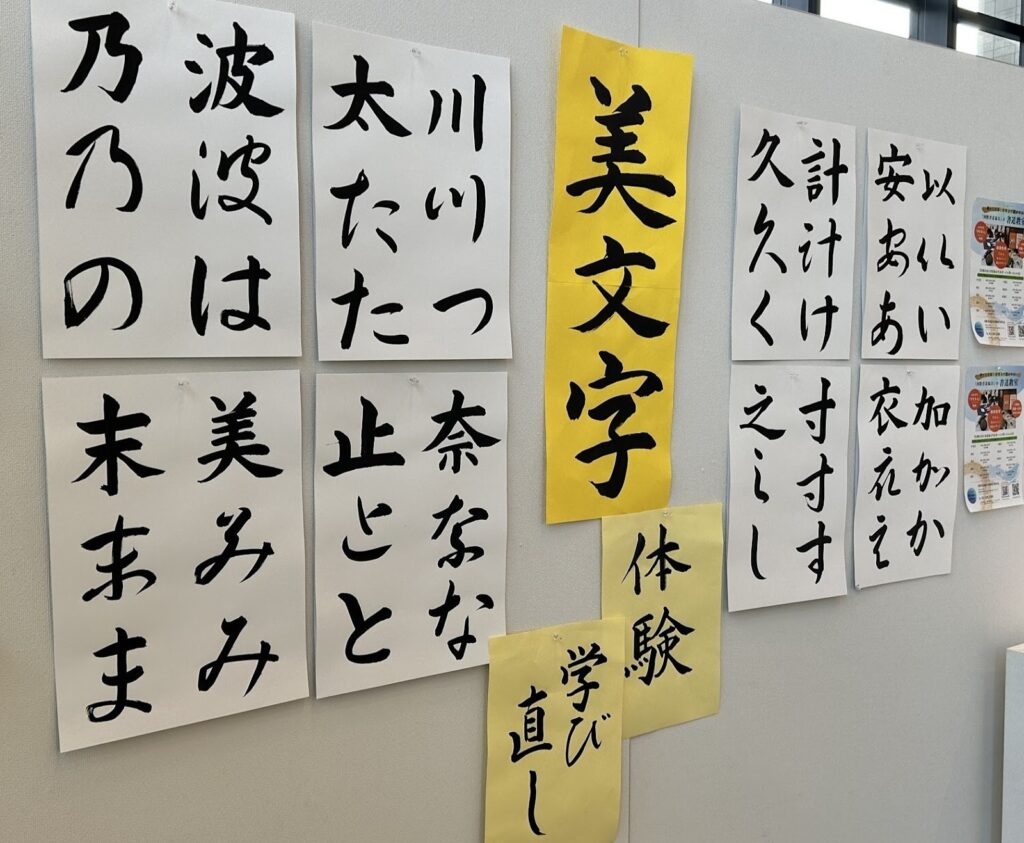 美文字
体験
学び
直し
以以い
安ああ
計計け
久久く
加加か
衣衣え
寸寸す
之之し
川川つ
太たた
波波は
乃乃の
奈なな
止とと
美みみ
末末ま
書道教室